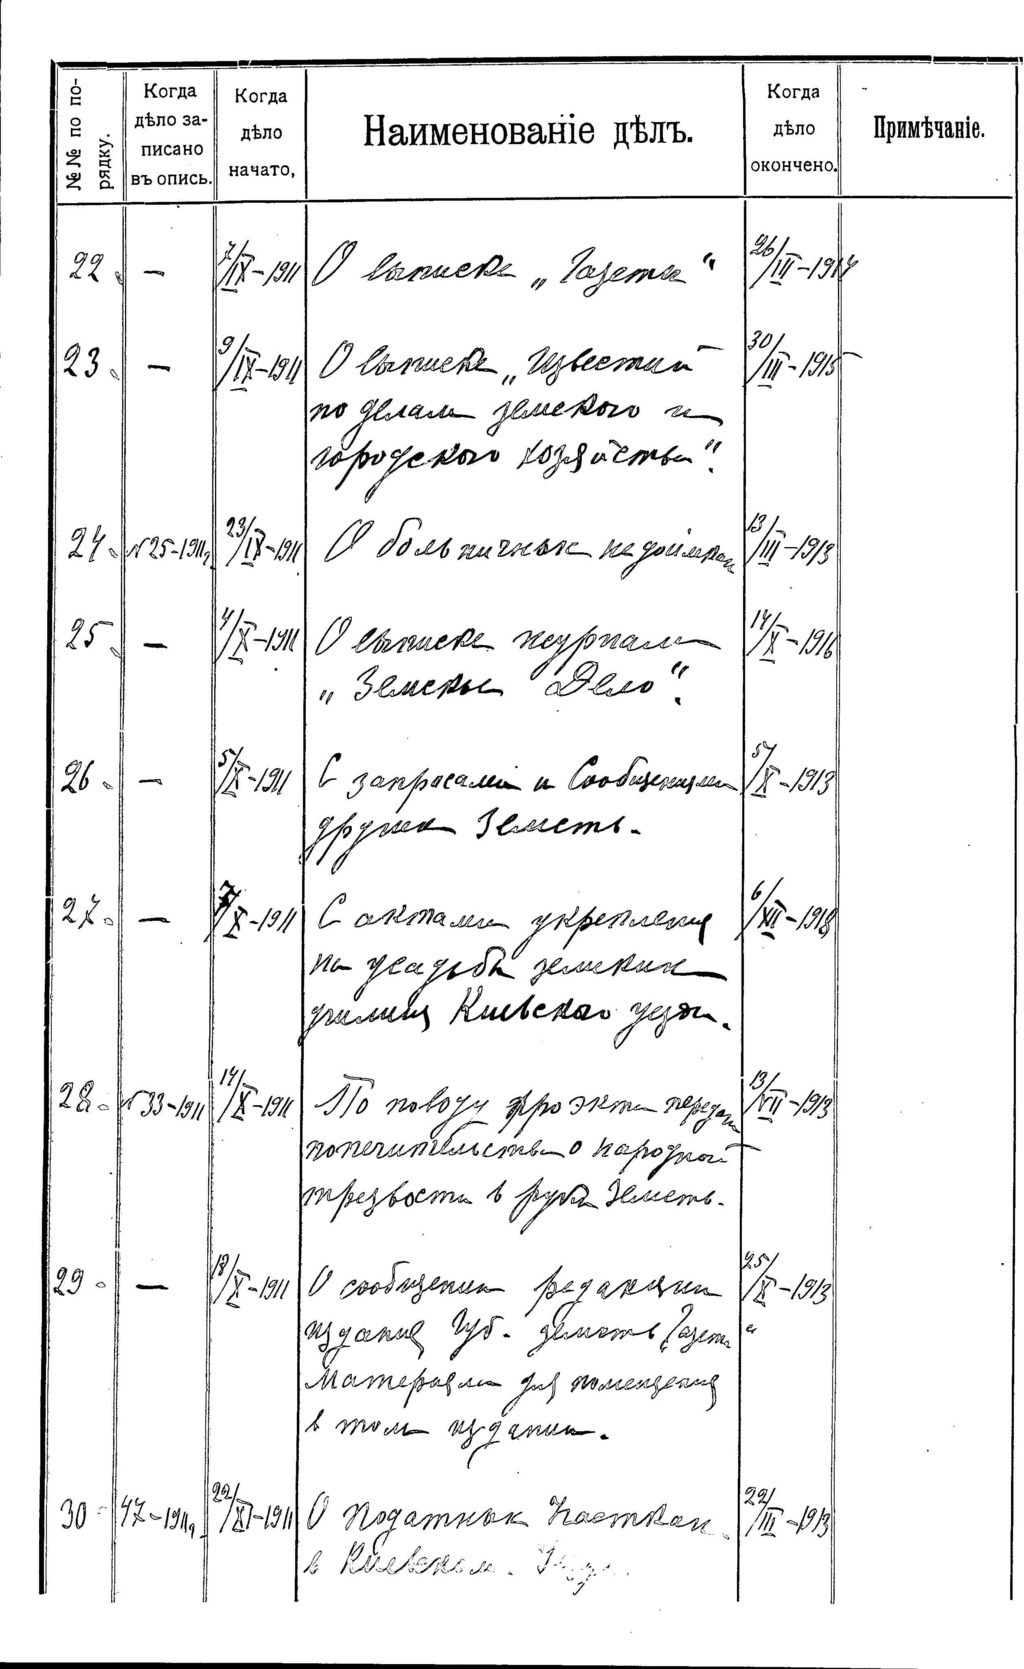 №№ по порядку.
Когда дѣло записано въ опись.
Когда дѣло начато,
Наименованіе дѣлъ.
Когда дѣло окончено.
Примѣчаніе.
22. — 7/IX-1911 О выписке „Газеты“ 26/III-1914
23. — 9/IX-1911 О выписке „Известий 30/III-1915
по делам земского и
городского хозяйства“.
24. №25-1911г 23/IX-1911 О больничных недоимках 13/III-1913
25. — 4/X-1911 О выписке журнала 14/X-1916
„Земское Дело“.
26. — 5/X-1911 С запросами и Сообщениями 5/X-1913
других Земств.
27. — 7/X-1911 С актами укрепления 6/XII-1918
на усадьбы земских
училищ Киевского уезда.
28. №33-1911 14/X-1911 По поводу проэкта передачи 13/VII-1913
попечительства о народной
трезвости в руки Земств.
29. — 18/X-1911 О сообщении редакции 25/X-1913
издания Губ. земств „Газета“
Материала для помещения
в том издании.
30 47-1911г. 22/XI-1911 О Податных Участках 22/III-1913
в Киевском